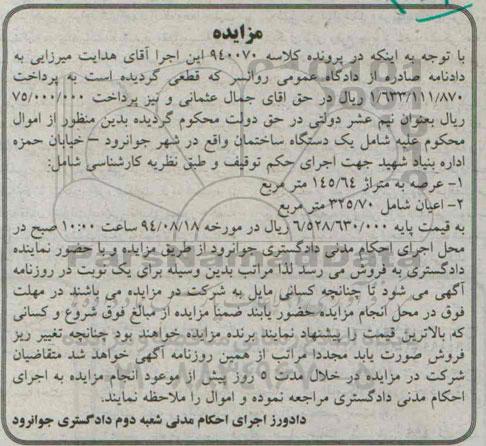 مزایده
با توجه به اینکه در پرونده کلاسه ۹۴۰۰۷۰ این اجرا آقای هدایت میرزایی به
دادنامه صادره از دادگاه عمومی روانسر که قطعی گردیده است به پرداخت
۱/۶۳۳/۱۱۱/۸۷۰ ریال در حق اقای جمال عثمانی و نیز پرداخت ۷۵/۰۰۰/۰۰۰
ریال بعنوان نیم عشر دولتی در حق دولت محکوم گردیده بدین منظور از اموال
محکوم علیه شامل یک دستگاه ساختمان واقع در شهر جوانرود – خیابان حمزه
اداره بنیاد شهید جهت اجرای حکم توقیف و طبق نظریه کارشناسی شامل:
۱- عرصه به متراژ ۱۴۵/۶۴ متر مربع
۲- اعیان شامل ۳۲۵/۷۰ متر مربع
به قیمت پایه ۶/۵۲۸/۶۳۰/۰۰۰ ریال در مورخه ۹۴/۰۸/۱۸ ساعت ۱۰:۰۰ صبح در
محل اجرای احکام مدنی دادگستری جوانرود از طریق مزایده و با حضور نماینده
دادگستری به فروش می رسد لذا مراتب بدین وسیله برای یک نوبت در روزنامه
آگهی می شود تا چنانچه کسانی مایل به شرکت در مزایده می باشند در مهلت
فوق در محل انجام مزایده حضور یابند ضمناً مزایده از مبالغ فوق شروع و کسانی
که بالاترین قیمت را پیشنهاد نمایند برنده مزایده خواهند بود چنانچه تغییر ریز
فروش صورت یابد مجددا مراتب از همین روزنامه آگهی خواهد شد متقاضیان
شرکت در مزایده در خلال مدت ۵ روز پیش از موعود انجام مزایده به اجرای
احکام مدنی دادگستری مراجعه نموده و اموال را ملاحظه نمایند.
دادورز اجرای احکام مدنی شعبه دوم دادگستری جوانرود